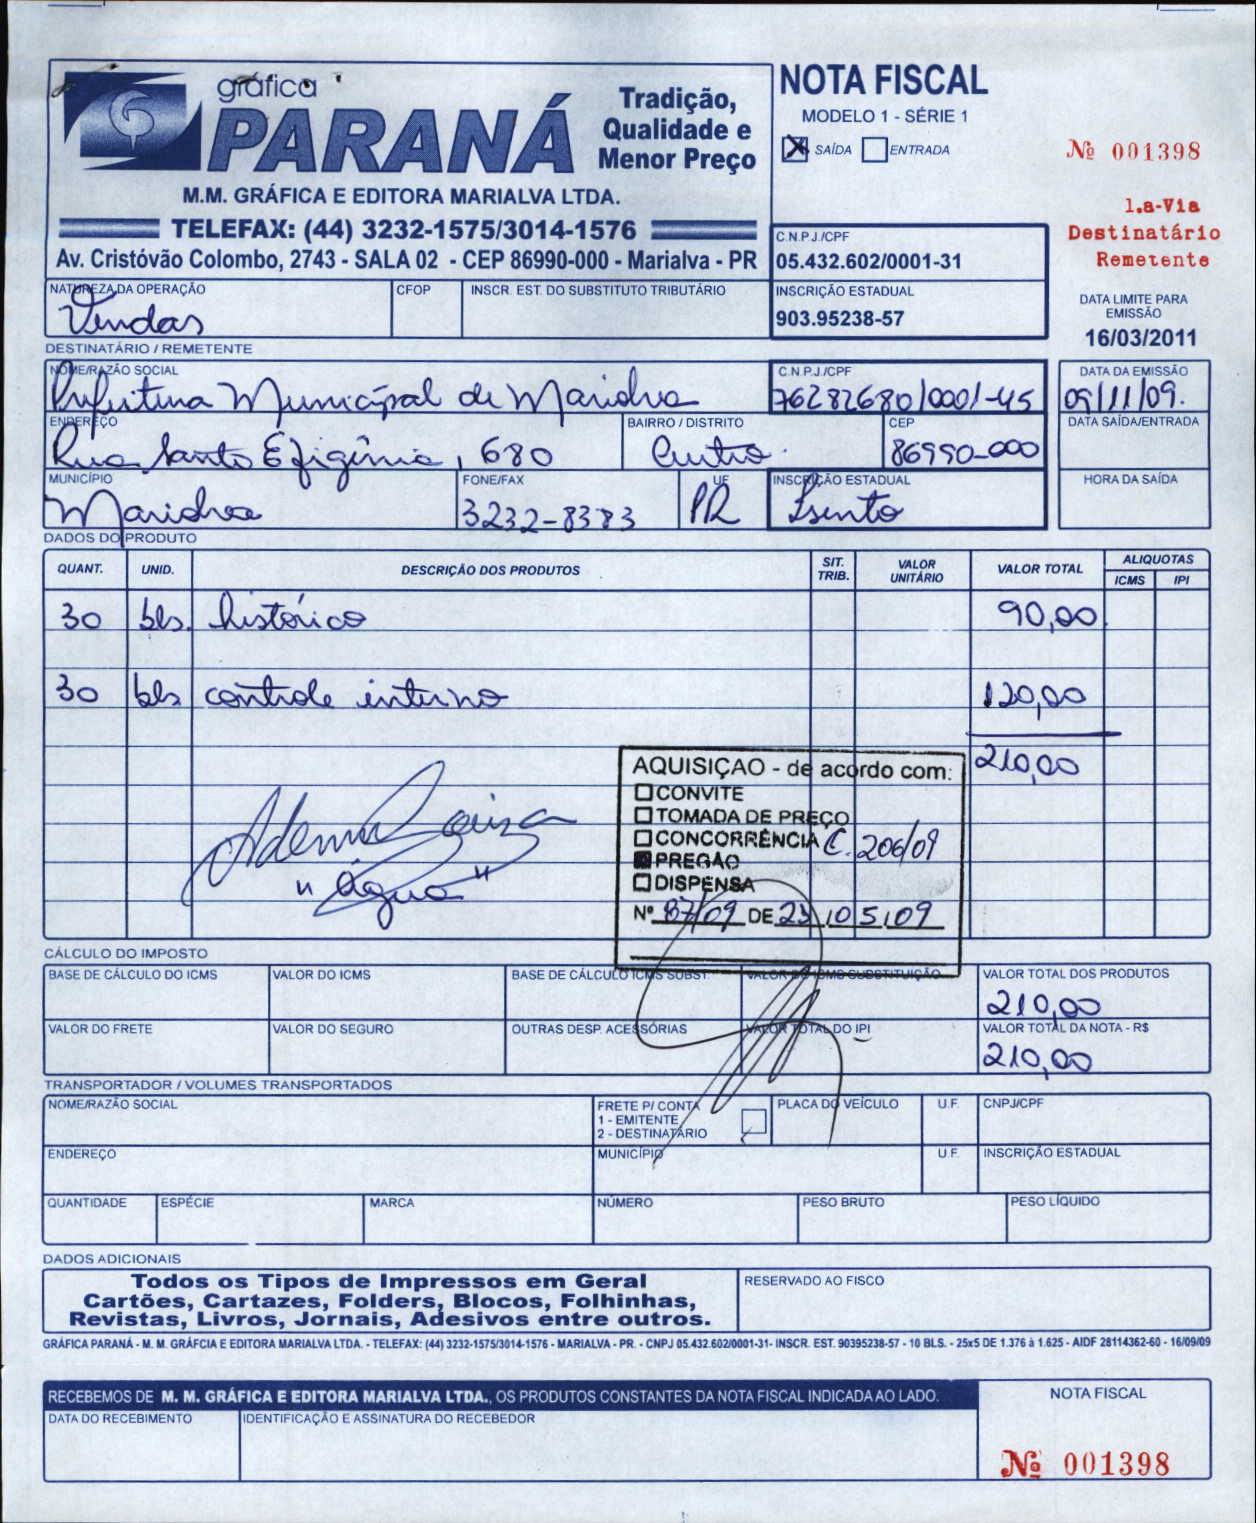 gráfica
PARANÁ
Tradição,
Qualidade e
Menor Preço
M.M. GRÁFICA E EDITORA MARIALVA LTDA.
TELEFAX: (44) 3232-1575/3014-1576
Av. Cristóvão Colombo, 2743 - SALA 02 - CEP 86990-000 - Marialva - PR
NOTA FISCAL
MODELO 1 - SÉRIE 1
X SAÍDA ENTRADA
Nº 001398
1.a-Via
Destinatário
Remetente
C.N.P.J./CPF
05.432.602/0001-31
NATUREZA DA OPERAÇÃO CFOP INSCR. EST. DO SUBSTITUTO TRIBUTÁRIO INSCRIÇÃO ESTADUAL
Vendas 903.95238-57
DATA LIMITE PARA
EMISSÃO
16/03/2011
DESTINATÁRIO / REMETENTE
NOME/RAZÃO SOCIAL C.N.P.J./CPF DATA DA EMISSÃO
Prefeitura Municipal de Marialva 76282680/0001-45 09/11/09.
ENDEREÇO BAIRRO / DISTRITO CEP DATA SAÍDA/ENTRADA
Rua Santa Efigênia, 680 Centro. 86990-000
MUNICÍPIO FONE/FAX UF INSCRIÇÃO ESTADUAL HORA DA SAÍDA
Marialva 3232-8383 PR Isento
DADOS DO PRODUTO
QUANT. UNID. DESCRIÇÃO DOS PRODUTOS SIT. TRIB. VALOR UNITÁRIO VALOR TOTAL ALIQUOTAS ICMS IPI
30 bls. histórico 90,00
30 bls controle interno 120,00
210,00
AQUISIÇAO - de acordo com:
CONVITE
TOMADA DE PREÇO
CONCORRÊNCIA C. 206/09
PREGÃO
DISPENSA
Nº 87/09 DE 23/05/09
Ademir Souza
"Água"
CÁLCULO DO IMPOSTO
BASE DE CÁLCULO DO ICMS VALOR DO ICMS BASE DE CÁLCULO ICMS SUBST. VALOR DO ICMS SUBSTITUIÇÃO VALOR TOTAL DOS PRODUTOS
210,00
VALOR DO FRETE VALOR DO SEGURO OUTRAS DESP. ACESSÓRIAS VALOR TOTAL DO IPI VALOR TOTAL DA NOTA - R$
210,00
TRANSPORTADOR / VOLUMES TRANSPORTADOS
NOME/RAZÃO SOCIAL FRETE P/ CONTA PLACA DO VEÍCULO U.F. CNPJ/CPF
1 - EMITENTE
2 - DESTINATÁRIO
ENDEREÇO MUNICÍPIO U.F. INSCRIÇÃO ESTADUAL
QUANTIDADE ESPÉCIE MARCA NÚMERO PESO BRUTO PESO LÍQUIDO
DADOS ADICIONAIS
Todos os Tipos de Impressos em Geral
Cartões, Cartazes, Folders, Blocos, Folhinhas,
Revistas, Livros, Jornais, Adesivos entre outros.
RESERVADO AO FISCO
GRÁFICA PARANÁ - M. M. GRÁFCIA E EDITORA MARIALVA LTDA. - TELEFAX: (44) 3232-1575/3014-1576 - MARIALVA - PR. - CNPJ 05.432.602/0001-31- INSCR. EST. 90395238-57 - 10 BLS. - 25x5 DE 1.376 à 1.625 - AIDF 28114362-60 - 16/09/09
RECEBEMOS DE M. M. GRÁFICA E EDITORA MARIALVA LTDA., OS PRODUTOS CONSTANTES DA NOTA FISCAL INDICADA AO LADO.
DATA DO RECEBIMENTO IDENTIFICAÇÃO E ASSINATURA DO RECEBEDOR
NOTA FISCAL
Nº 001398